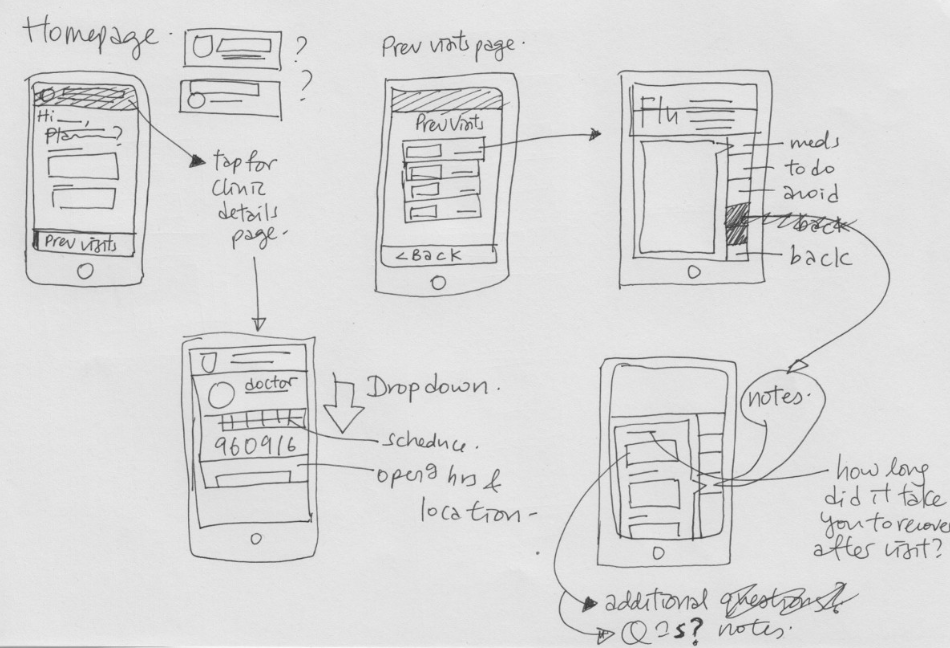 Homepage.
?
?
Hi __,
Plan __?
Prev visits
tap for
clinic
details
page.
Prev visits page.
Prev Visits
< Back
Flu
meds
to do
avoid
back
back
doctor
960916
Dropdown.
schedule.
location -
notes.
how long
did it take
you to recover
after visit?
additional questions?
notes.